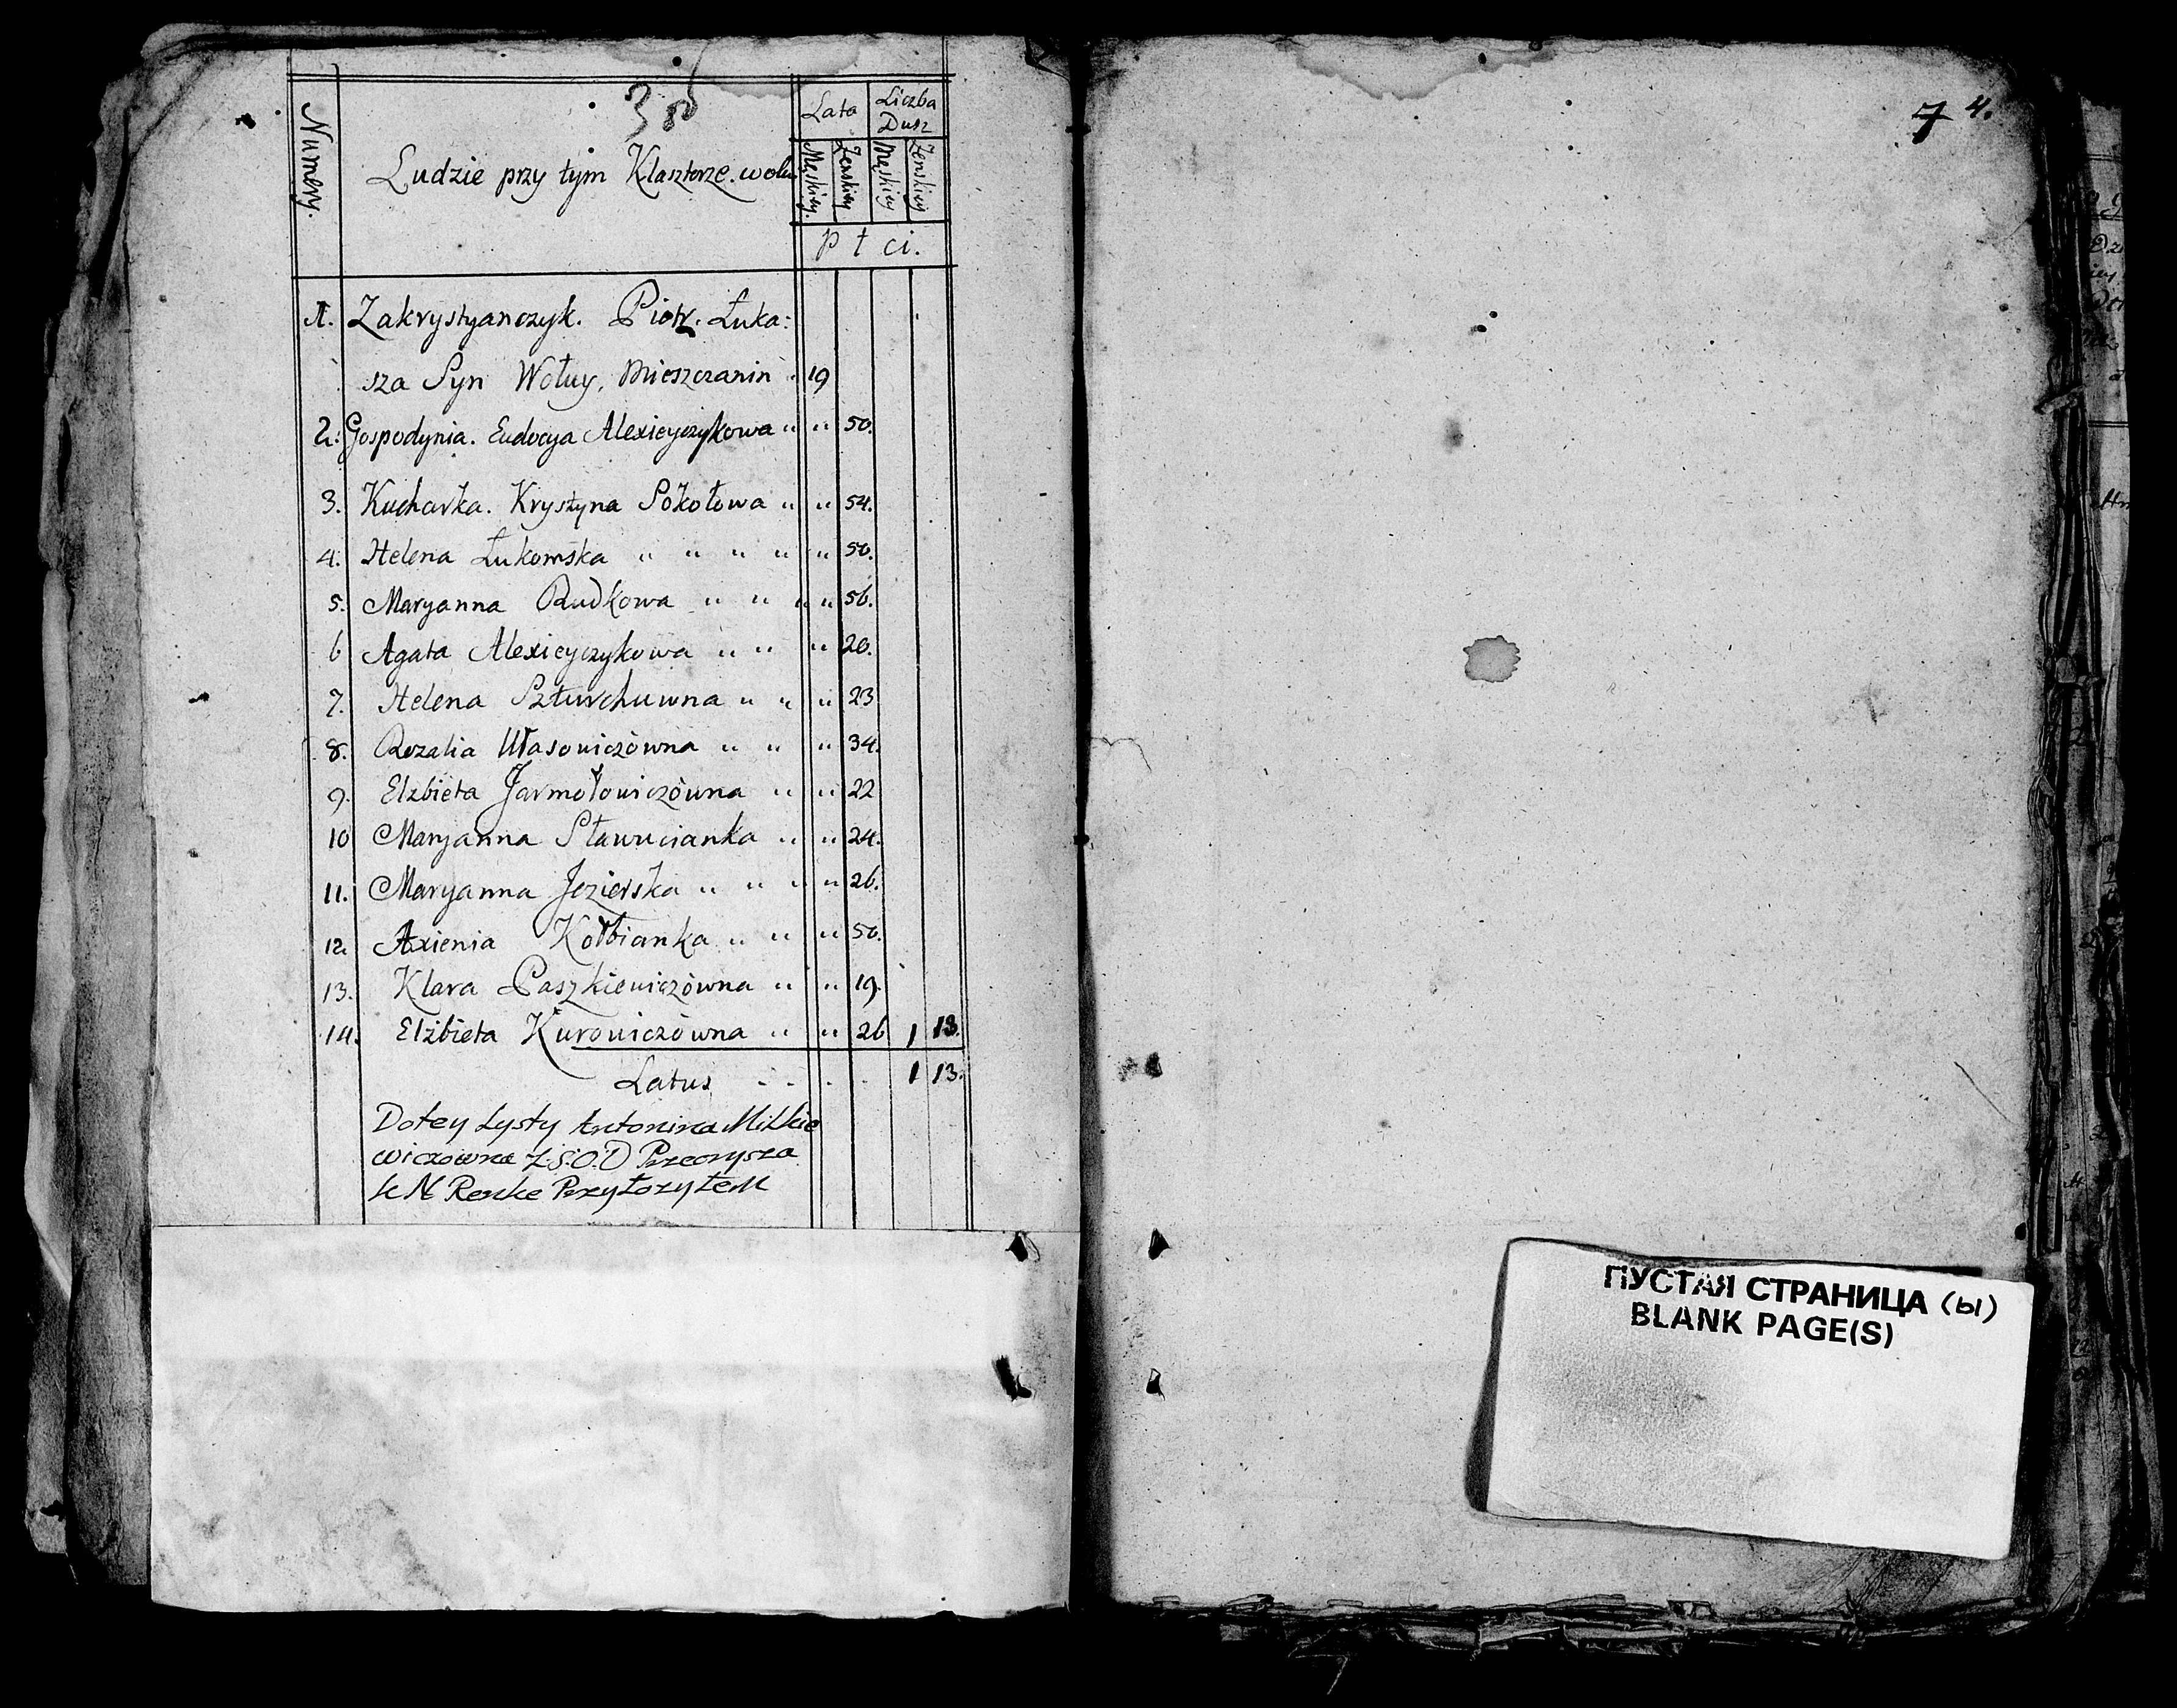 Numery.
Ludzie przy tym Klasztorze. wolni
Lata
Liczba Dusz
Męskiey.
Żenskiey
Męskiey
Żenskiey
Płci.
1. Zakrystyanczyk. Piotr. Łuka:
sza Syn Wołuy, Mieszczanin " 19
2. Gospodynia. Eudocya Alexieyczykowa " " 50.
3. Kucharka. Krystyna Sokołowa " " 54.
4. Helena Łukomska " " " " " 50.
5. Maryanna Rudkowa " " " " 56.
6 Agata Alexieyczykowa " " " 20.
7. Helena Szturchuwna " " " 23
8. Rozalia Ułasowiczówna " " " 34.
9. Elzbieta Jarmołowiczówna " " 22
10 Maryanna Sławucianka " " 24.
11. Maryanna Jezierska " " " " 26.
12. Axienia Kołbianka " " " 50.
13. Klara Paszkiewiczówna " " 19.
14. Elżbieta Kurowiczówna " " 26 1 13.
Latus . . . . 1 13.
Dotey Lysty Antonina Mitkie
wiczowna Z.S.O.D Przeorysza
k N Renke Przyłozyłem
7 4.
ПУСТАЯ СТРАНИЦА (Ы)
BLANK PAGE(S)